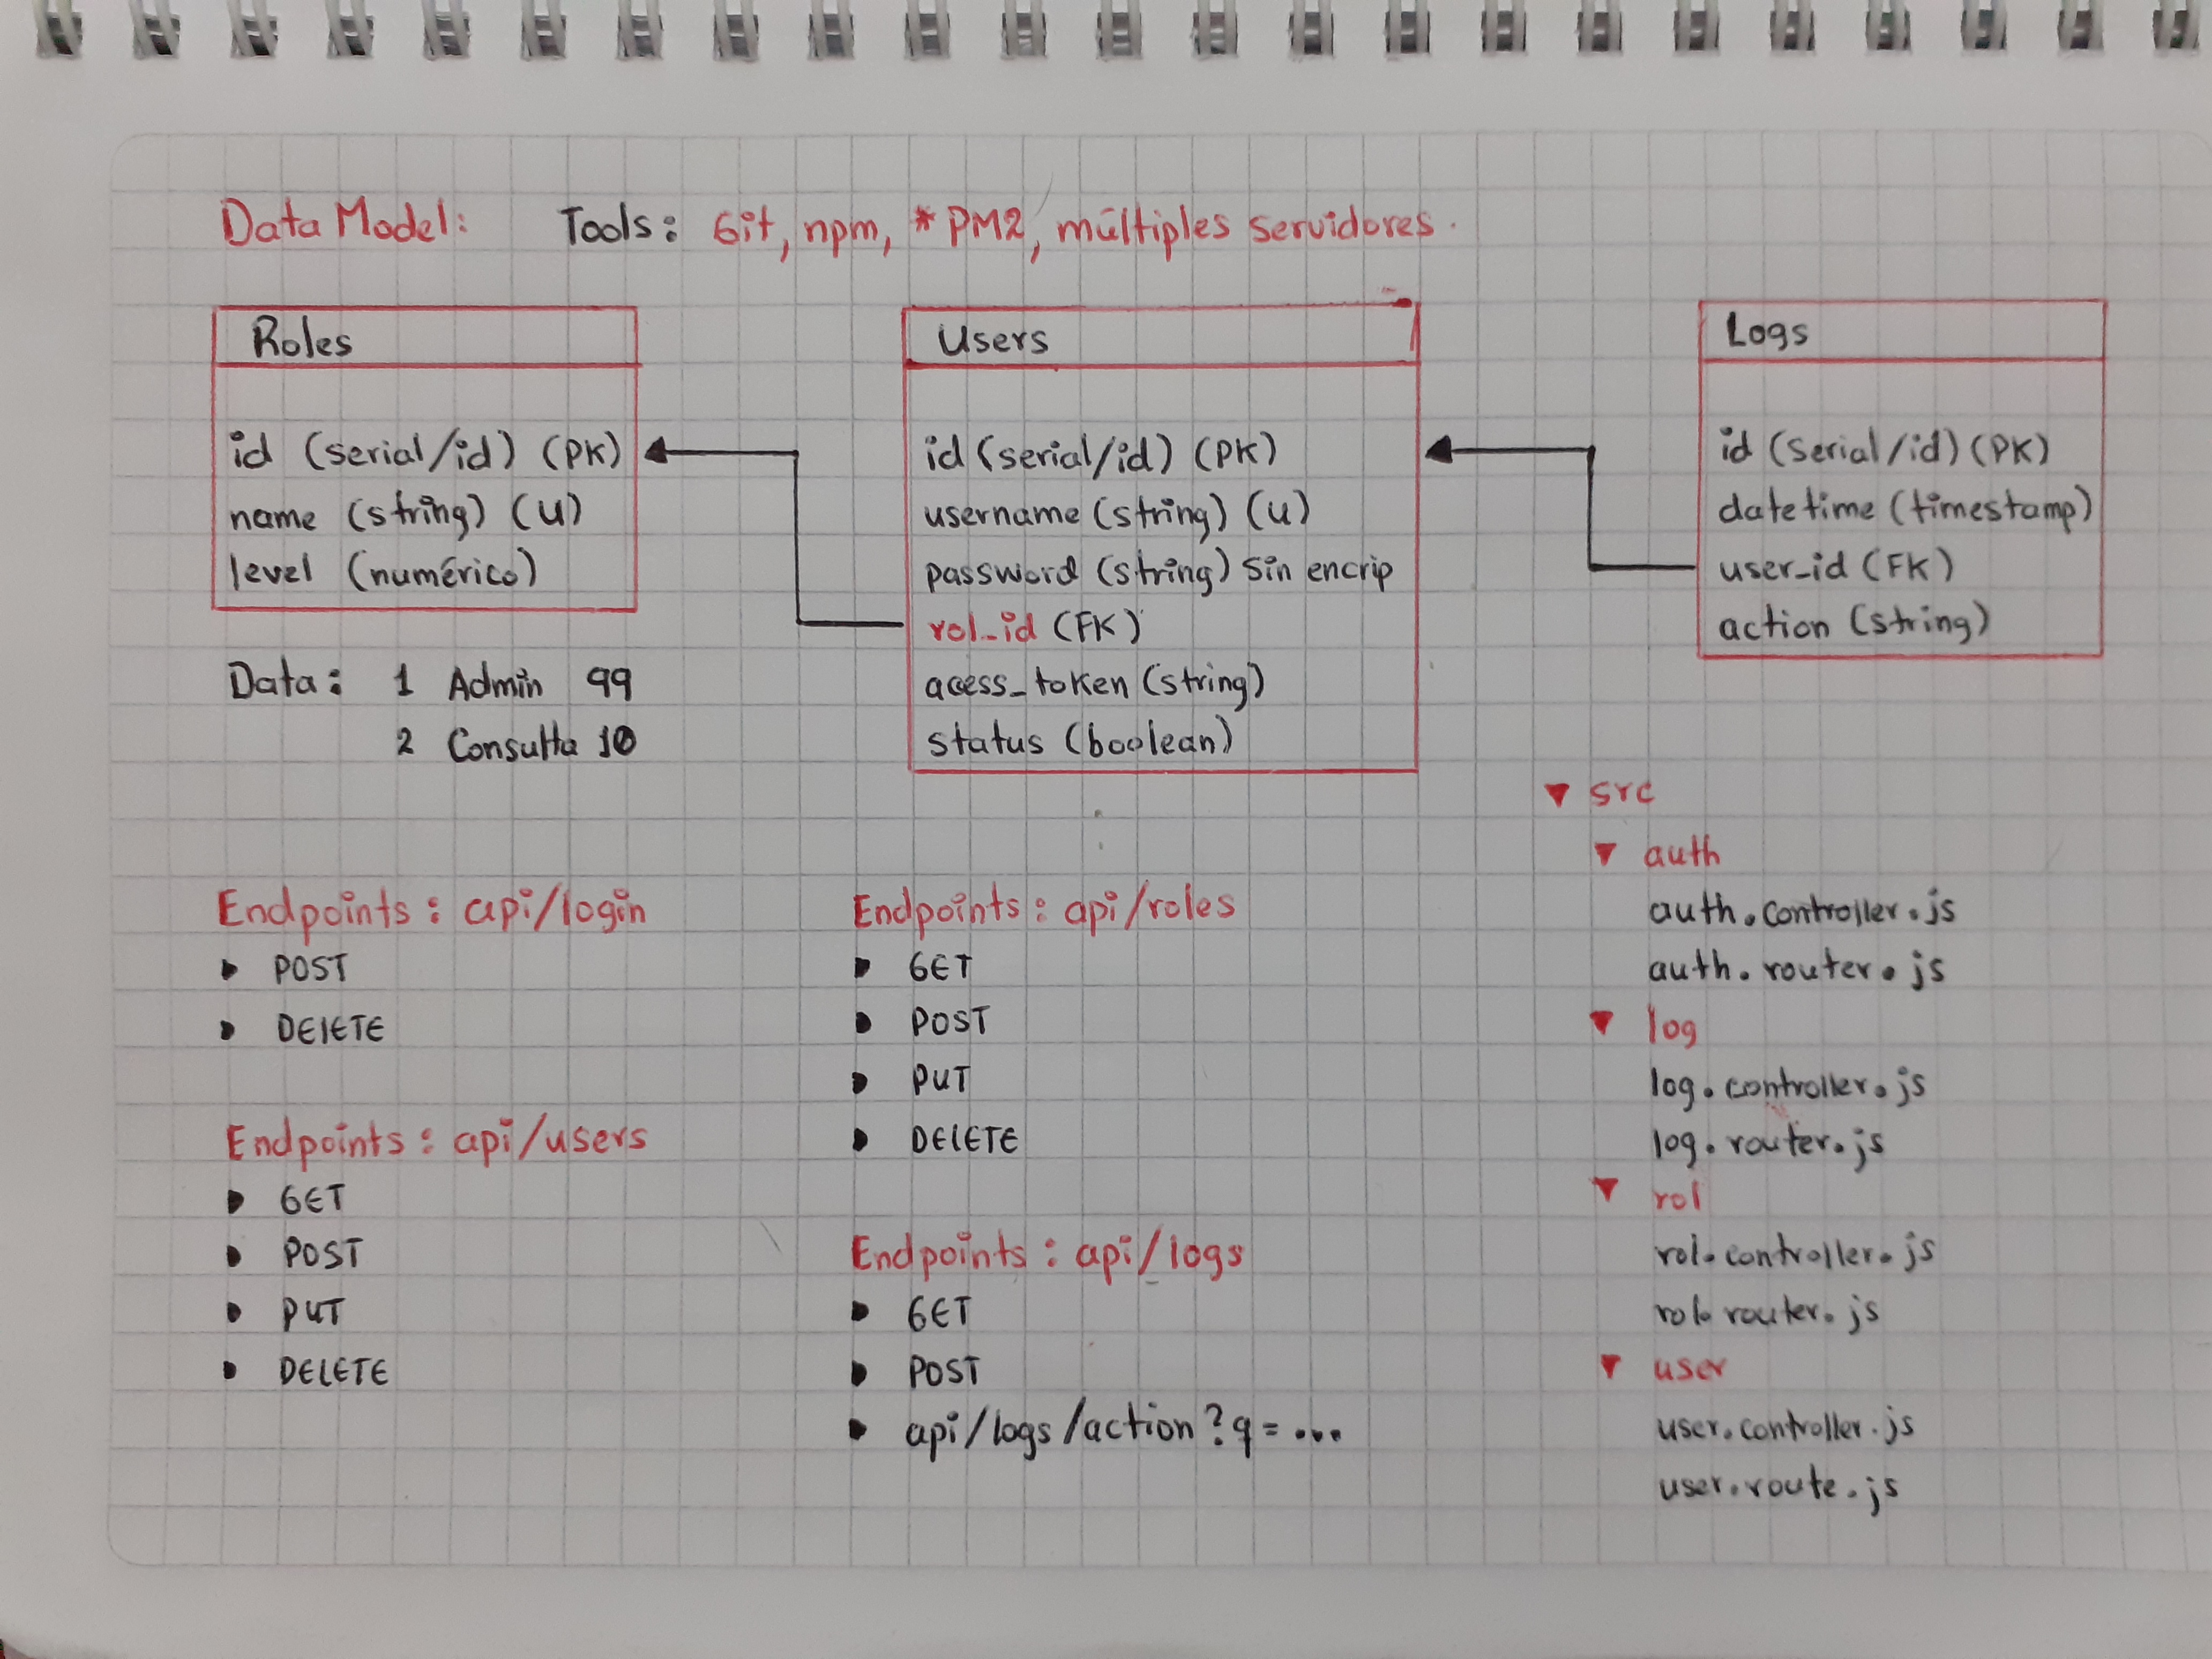 Data Model: Tools: Git, npm, * PM2, múltiples servidores.
Roles
id (serial/id) (PK)
name (string) (U)
level (numérico)
Data: 1 Admin 99
2 Consulta 10
Users
id (serial/id) (PK)
username (string) (U)
password (string) Sin encrip
rol_id (FK)
acess_token (string)
status (boolean)
Logs
id (serial/id) (PK)
datetime (timestamp)
user_id (FK)
action (string)
Endpoints: api/login
POST
DELETE
Endpoints: api/users
GET
POST
PUT
DELETE
Endpoints: api/roles
GET
POST
PUT
DELETE
Endpoints: api/logs
GET
POST
api/logs/action?q=...
src
auth
auth.controller.js
auth.router.js
log
log.controller.js
log.router.js
rol
rol.controller.js
rol.router.js
user
user.controller.js
user.route.js